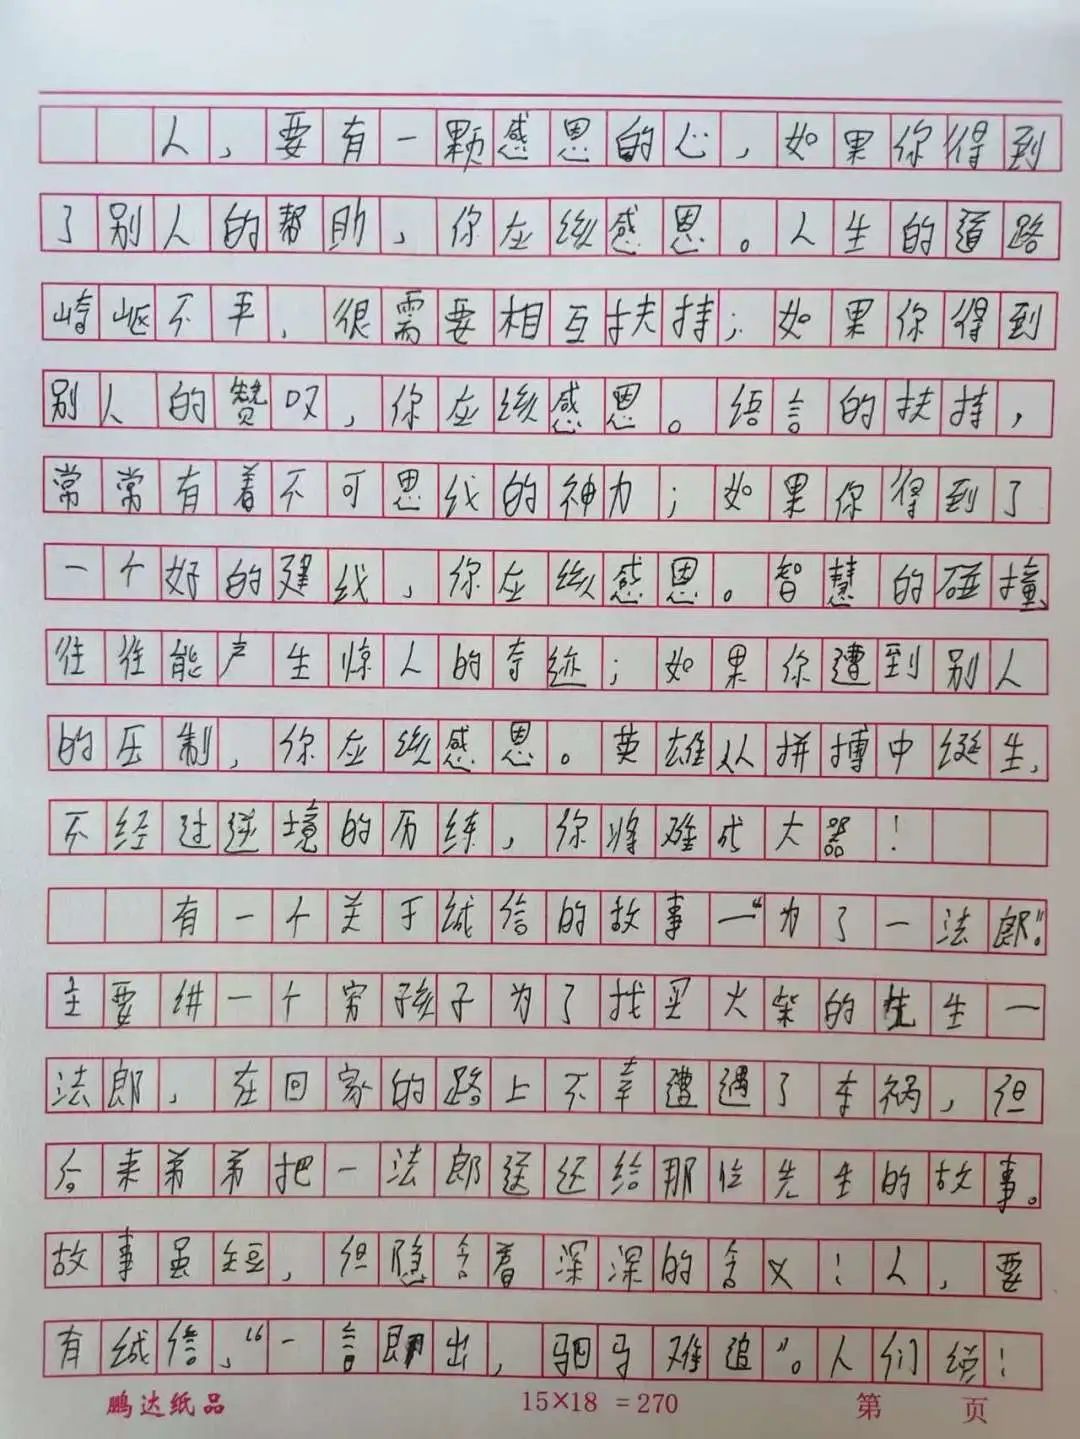 人，要有一颗感恩的心，如果你得到
了别人的帮助，你应该感恩。人生的道路
崎岖不平，很需要相互扶持；如果你得到
别人的赞叹，你应该感恩。语言的扶持，
常常有着不可思议的神力；如果你得到了
一个好的建议，你应该感恩。智慧的碰撞
往往能产生惊人的奇迹；如果你遭到别人
的压制，你应该感恩。英雄从拼搏中诞生，
不经过逆境的历练，你将难成大器！
有一个关于诚信的故事一“为了一法郎”。
主要讲一个穷孩子为了找买火柴的先生一
法郎，在回家的路上不幸遭遇了车祸，但
后来弟弟把一法郎送还给那位先生的故事。
故事虽短，但隐含着深深的含义：人，要
有诚信，“一言即出，驷马难追”。人们说：
鹏达纸品 15×18＝270 第 页